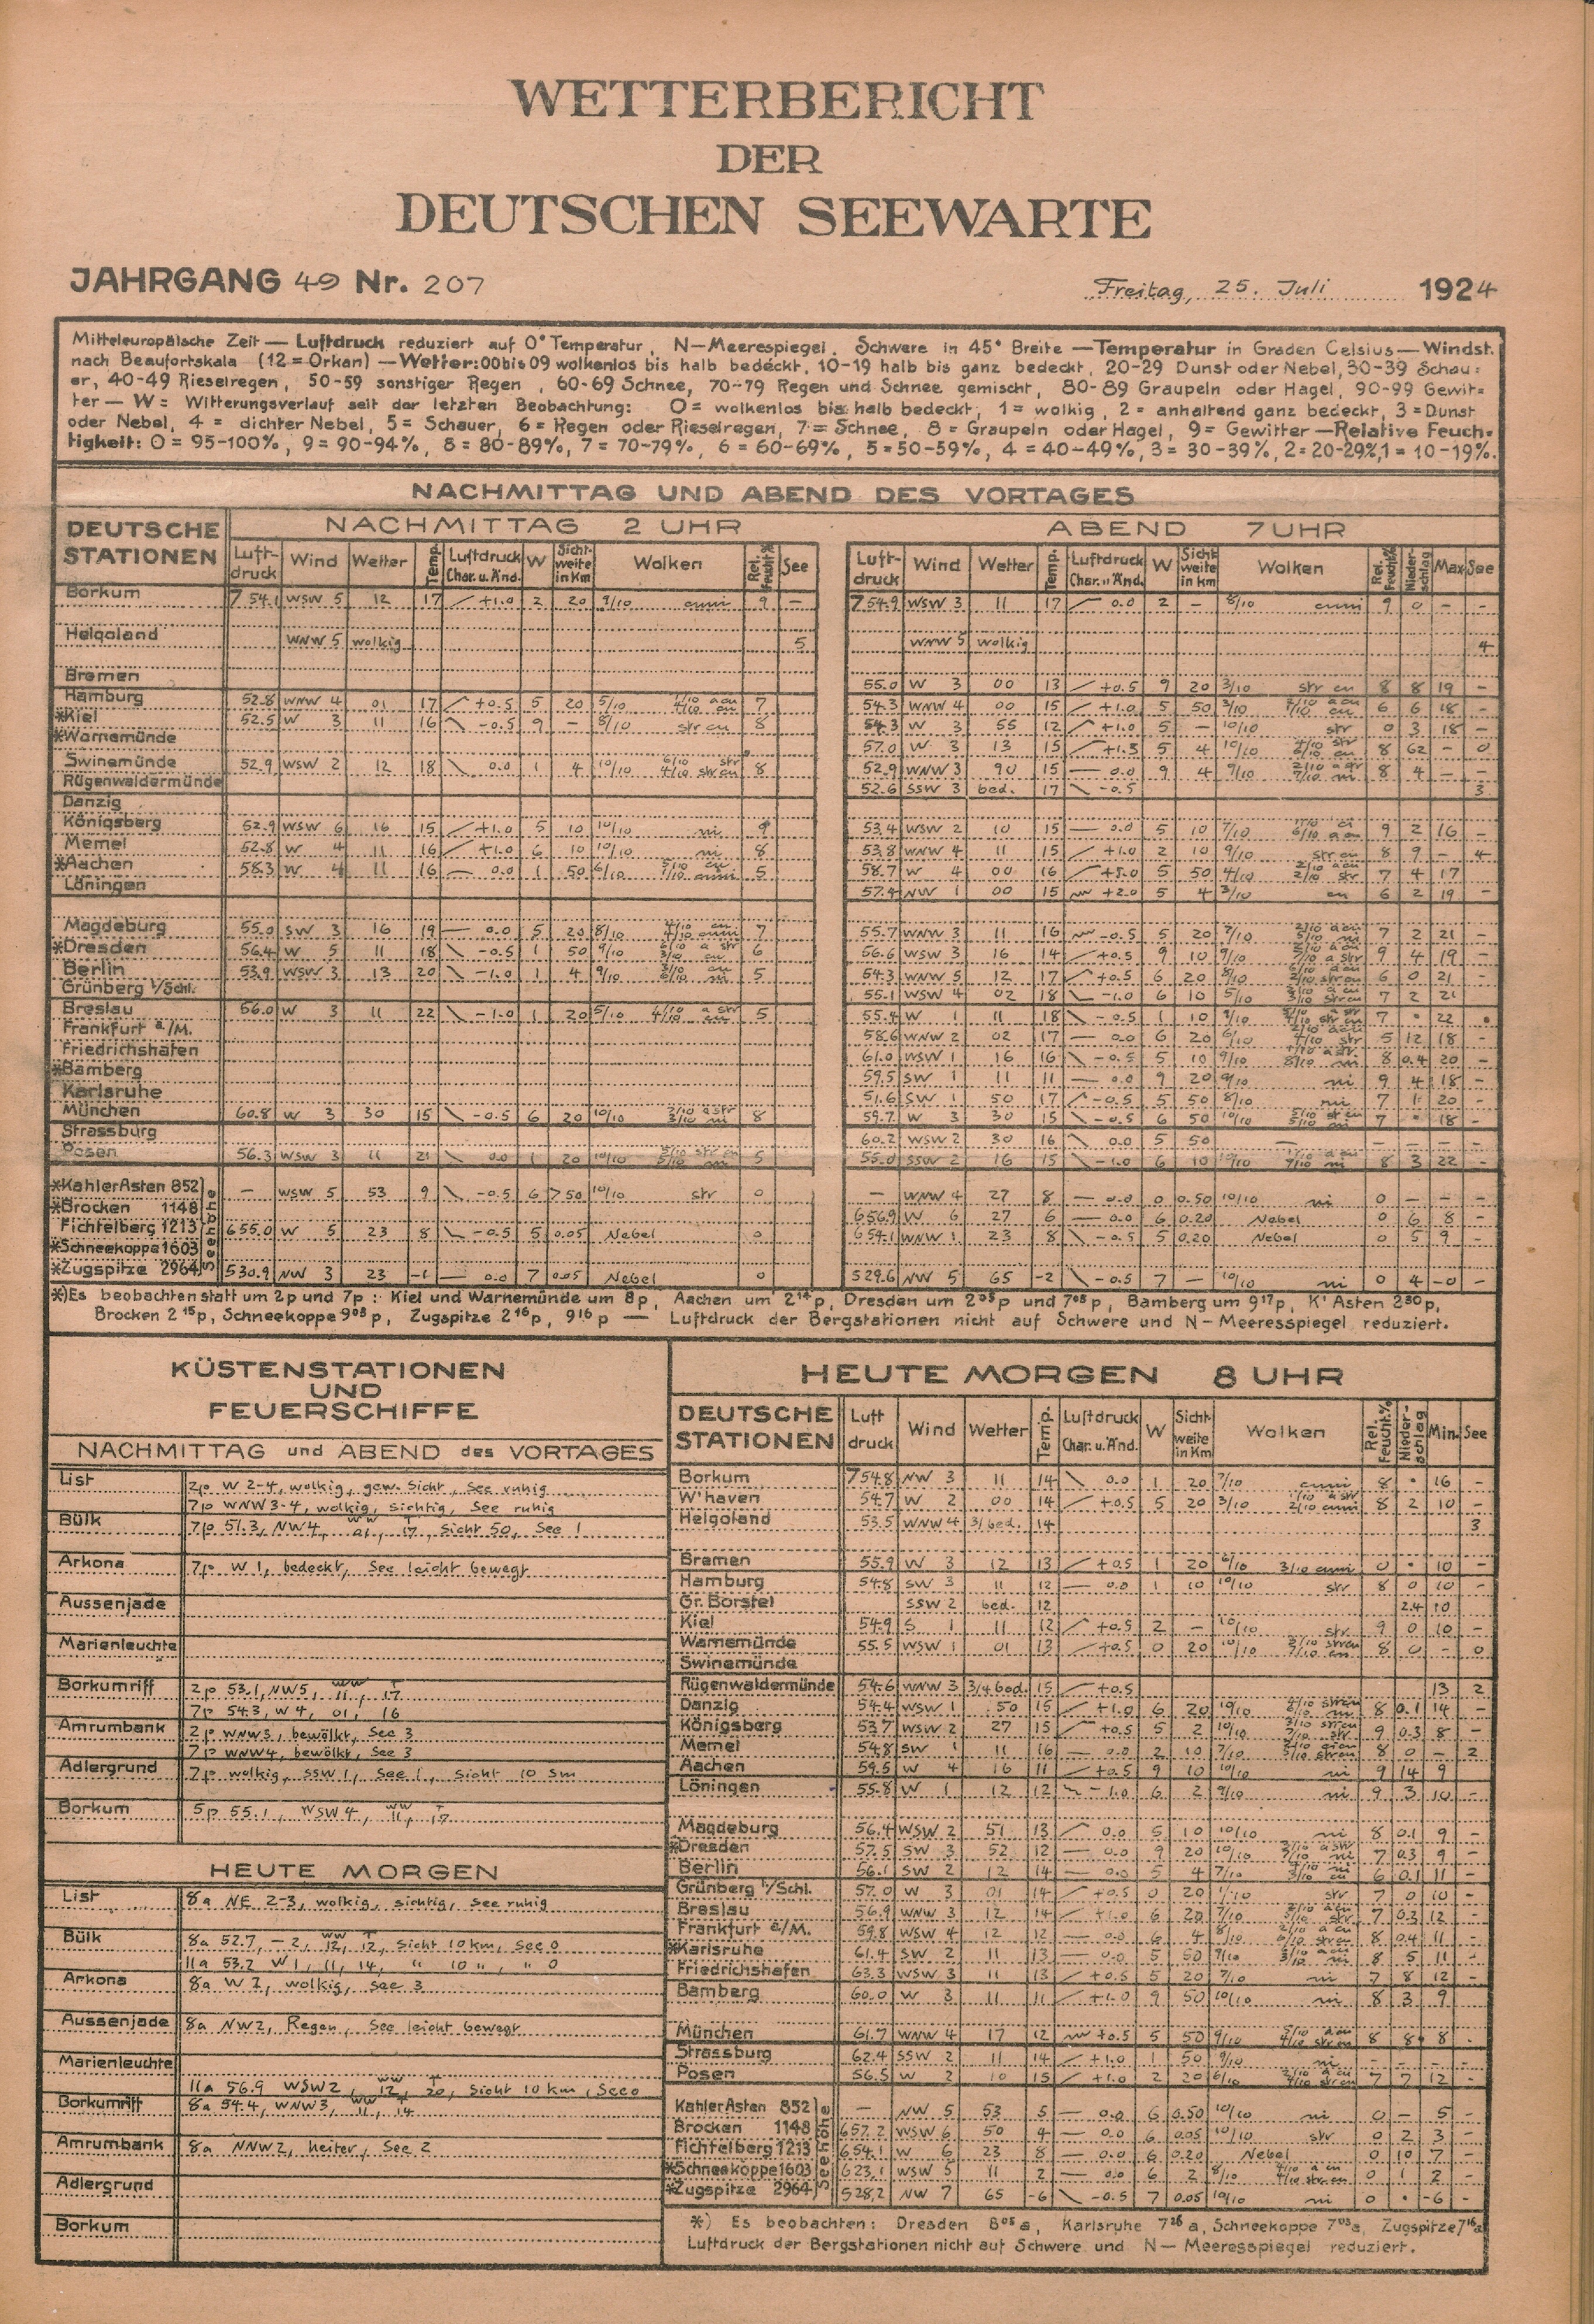 WETTERBERICHT
DER
DEUTSCHEN SEEWARTE
JAHRGANG 49 Nr. 207 Freitag, 25. Juli 1924
Mitteleuropäische Zeit — Luftdruck reduziert auf 0° Temperatur, N—Meerespiegel. Schwere in 45° Breite — Temperatur in Graden Celsius — Windst.
nach Beaufortskala (12 = Orkan) — Wetter: 00 bis 09 wolkenlos bis halb bedeckt, 10-19 halb bis ganz bedeckt, 20-29 Dunst oder Nebel, 30-39 Schau=
er, 40-49 Rieselregen, 50-59 sonstiger Regen, 60-69 Schnee, 70-79 Regen und Schnee gemischt, 80-89 Graupeln oder Hagel, 90-99 Gewit=
ter — W = Witterungsverlauf seit der letzten Beobachtung: 0 = wolkenlos bis halb bedeckt, 1 = wolkig, 2 = anhaltend ganz bedeckt, 3 = Dunst
oder Nebel, 4 = dichter Nebel, 5 = Schauer, 6 = Regen oder Rieselregen, 7 = Schnee, 8 = Graupeln oder Hagel, 9 = Gewitter — Relative Feuch=
tigkeit: 0 = 95-100%, 9 = 90-94%, 8 = 80-89%, 7 = 70-79%, 6 = 60-69%, 5 = 50-59%, 4 = 40-49%, 3 = 30-39%, 2 = 20-29%, 1 = 10-19%.
NACHMITTAG UND ABEND DES VORTAGES
DEUTSCHE STATIONEN NACHMITTAG 2 UHR ABEND 7 UHR
Luftdruck Wind Wetter Temp. Luftdruck Char. u. Änd. W Sichtweite in Km Wolken Rel. Feucht.% See Luftdruck Wind Wetter Temp. Luftdruck Char. u. Änd. W Sichtweite in Km Wolken Rel. Feucht.% Niederschlag Max See
Borkum 754.1 WSW 5 12 17 +1.0 2 20 9/10 cuni 9 – 754.9 WSW 3 11 17 0.0 2 – 8/10 cuni 9 0 – –
Helgoland WNW 5 wolkig 5 WNW 5 wolkig 4
Bremen 55.0 W 3 00 13 +0.5 9 20 3/10 str cu 8 8 19 –
Hamburg 52.8 WNW 4 01 17 +0.5 5 20 5/10 7 54.3 WNW 4 00 15 +1.0 5 50 3/10 6 6 18 –
*Kiel 52.5 W 3 11 16 -0.5 9 – 8/10 str cu 8 54.3 W 3 55 12 +1.0 5 – 10/10 str 0 3 18 –
*Warnemünde 57.0 W 3 13 15 +1.5 5 4 10/10 8 62 – 0
Swinemünde 52.9 WSW 2 12 18 0.0 1 4 10/10 8 52.9 WNW 3 90 15 0.0 9 4 9/10 8 4 – –
Rügenwaldermünde 52.6 SSW 3 bed. 17 -0.5 3
Danzig
Königsberg 52.9 WSW 6 16 15 +1.0 5 10 10/10 ni 9 53.4 WSW 2 10 15 0.0 5 10 7/10 9 2 16 –
Memel 52.8 W 4 11 16 +1.0 6 10 10/10 ni 8 53.8 WNW 4 11 15 +1.0 2 10 9/10 str cu 8 9 – 4
*Aachen 58.3 W 4 11 16 0.0 1 50 6/10 5 58.7 W 4 00 16 +5.0 5 50 4/10 7 4 17
Löningen 57.4 NW 1 00 15 +2.0 5 4 3/10 cu 6 2 19 –
Magdeburg 55.0 SW 3 16 19 0.0 5 20 8/10 7 55.7 WNW 3 11 16 -0.5 5 20 7/10 7 2 21 –
*Dresden 56.4 W 5 11 18 -0.5 1 50 9/10 6 56.6 WSW 3 16 14 +0.5 9 10 9/10 9 4 19 –
Berlin 53.9 WSW 3 13 20 -1.0 1 4 9/10 5 54.3 WNW 5 12 17 +0.5 6 20 8/10 6 0 21 –
Grünberg i/Schl. 55.1 WSW 4 02 18 -1.0 6 10 5/10 7 2 21
Breslau 56.0 W 3 11 22 -1.0 1 20 5/10 5 55.4 W 1 11 18 -0.5 1 10 9/10 7 • 22 •
Frankfurt a/M. 58.6 WNW 2 02 17 0.0 6 20 5 12 18 –
Friedrichshafen 61.0 WSW 1 16 16 -0.5 5 10 9/10 8 0.4 20 –
*Bamberg 59.5 SW 1 11 11 0.0 9 20 9/10 ni 9 4 18 –
Karlsruhe 51.6 SW 1 50 17 -0.5 5 50 8/10 ni 7 1 20 –
München 60.8 W 3 30 15 -0.5 6 20 10/10 8 59.7 W 3 30 15 -0.5 6 50 10/10 7 • 18 –
Strassburg 60.2 WSW 2 30 16 0.0 5 50 – – – – –
Posen 56.3 WSW 3 11 21 0.0 1 20 10/10 5 55.0 SSW 2 16 15 -1.0 6 10 10/10 8 3 22 –
Seehöhe
*Kahler Asten 852 – WSW 5 53 9 -0.5 6 >50 10/10 str 0 – WNW 4 27 8 0.0 0 0.50 10/10 ni 0 – – –
*Brocken 1148 656.9 W 6 27 6 0.0 6 0.20 Nebel 0 6 8 –
Fichtelberg 1213 655.0 W 5 23 8 -0.5 5 0.05 Nebel 0 654.1 WNW 1 23 8 -0.5 5 0.20 Nebel 0 5 9 –
*Schneekoppe 1603
*Zugspitze 2964 530.9 NW 3 23 -1 0.0 7 0.05 Nebel 0 529.6 NW 5 65 -2 -0.5 7 – 10/10 ni 0 4 -0 –
*) Es beobachten statt um 2p und 7p: Kiel und Warnemünde um 8p, Aachen um 2 14 p, Dresden um 2 05 p und 7 05 p, Bamberg um 9 17 p, K' Asten 2 30 p,
Brocken 2 15 p, Schneekoppe 9 05 p, Zugspitze 2 16 p, 9 16 p — Luftdruck der Bergstationen nicht auf Schwere und N–Meeresspiegel reduziert.
KÜSTENSTATIONEN
UND
FEUERSCHIFFE
NACHMITTAG und ABEND des VORTAGES
List 2p W 2-4, wolkig, gew. Sicht, See ruhig
7p WNW 3-4, wolkig, sichtig, See ruhig
Bülk 7p 51.3, NW4, ww 01, T 17, Sicht 50, See 1
Arkona 7p W 1, bedeckt, See leicht bewegt
Aussenjade
Marienleuchte
Borkumriff 2p 53.1, NW5, ww 11, T 17
7p 54.3, W 4, 01, 16
Amrumbank 2p WNW3, bewölkt, See 3
7p WNW4, bewölkt, See 3
Adlergrund 7p wolkig, SSW 1, See 1, Sicht 10 Sm
Borkum 5p 55.1, WSW 4, ww 11, T 17
HEUTE MORGEN
List 8a NE 2-3, wolkig, sichtig, See ruhig
Bülk 8a 52.7, – 2, ww 12, T 12, Sicht 10 km, See 0
11a 53.2 W 1, 11, 14, " 10 ", " 0
Arkona 8a W 2, wolkig, See 3
Aussenjade 8a NW2, Regen, See leicht bewegt
Marienleuchte
11a 56.9 WSW2, ww 12, T 20, Sicht 10 km, See 0
Borkumriff 8a 54.4, WNW3, ww 11, T 14
Amrumbank 8a NNW2, heiter, See 2
Adlergrund
Borkum
HEUTE MORGEN 8 UHR
DEUTSCHE STATIONEN Luftdruck Wind Wetter Temp. Luftdruck Char. u. Änd. W Sichtweite in Km Wolken Rel. Feucht.% Niederschlag Min. See
Borkum 754.8 NW 3 11 14 0.0 1 20 7/10 cuni 8 • 16 –
W'haven 54.7 W 2 00 14 +0.5 5 20 3/10 8 2 10 –
Helgoland 53.5 WNW 4 3/4 bed. 14 3
Bremen 55.9 W 3 12 13 +0.5 1 20 6/10 3/10 cuni 0 • 10 –
Hamburg 54.8 SW 3 11 12 0.0 1 10 10/10 str 8 0 10 –
Gr. Borstel SSW 2 bed. 12 2.4 10
Kiel 54.9 S 1 11 12 +0.5 2 – 10/10 str 9 0 10 –
Warnemünde 55.5 WSW 1 01 13 +0.5 0 20 10/10 8 0 – 0
Swinemünde
Rügenwaldermünde 54.6 WNW 3 3/4 bed. 15 +0.5 13 2
Danzig 54.4 WSW 1 50 15 +1.0 6 20 10/10 8 0.1 14 –
Königsberg 53.7 WSW 2 27 15 +0.5 5 2 10/10 9 0.3 8 –
Memel 54.8 SW 1 11 16 0.0 2 10 7/10 8 0 – 2
Aachen 59.5 W 4 16 11 +0.5 9 10 10/10 ni 9 14 9
Löningen 55.8 W 1 12 12 -1.0 6 2 9/10 ni 9 3 10 –
Magdeburg 56.4 WSW 2 51 13 0.0 5 10 10/10 ni 8 0.1 9 –
*Dresden 57.5 SW 3 52 12 0.0 9 20 10/10 7 0.3 9 –
Berlin 56.1 SW 2 12 14 0.0 5 4 7/10 6 0.1 11 –
Grünberg i/Schl. 57.0 W 3 01 14 +0.5 0 20 1/10 str 7 0 10 –
Breslau 56.9 WNW 3 12 14 +1.0 6 20 7/10 7 0.3 12 –
Frankfurt a/M. 59.8 WSW 4 12 12 0.0 6 4 8/10 8 0.4 11 –
*Karlsruhe 61.4 SW 2 11 13 0.0 5 50 9/10 8 5 11 –
Friedrichshafen 63.3 WSW 3 11 13 +0.5 5 20 7/10 ni 7 8 12 –
Bamberg 60.0 W 3 11 11 +1.0 9 50 10/10 ni 8 3 9
München 61.7 WNW 4 17 12 +0.5 5 50 9/10 8 8 8 –
Strassburg 62.4 SSW 2 11 14 +1.0 1 50 9/10 ni – – – –
Posen 56.5 W 2 10 15 +1.0 2 20 6/10 7 7 12 –
Seehöhe
Kahler Asten 852 – NW 5 53 5 0.0 6 0.50 10/10 ni 0 – 5 –
Brocken 1148 657.2 WSW 6 50 4 0.0 6 0.05 10/10 str 0 2 3 –
Fichtelberg 1213 654.1 W 6 23 8 0.0 6 0.20 Nebel 0 10 7 –
*Schneekoppe 1603 623.1 WSW 5 11 2 0.0 6 2 8/10 0 1 2 –
*Zugspitze 2964 528.2 NW 7 65 -6 -0.5 7 0.05 10/10 ni 0 • -6 –
*) Es beobachten: Dresden 8 05 a, Karlsruhe 7 26 a, Schneekoppe 7 03 a, Zugspitze 7 16 a
Luftdruck der Bergstationen nicht auf Schwere und N—Meeresspiegel reduziert.